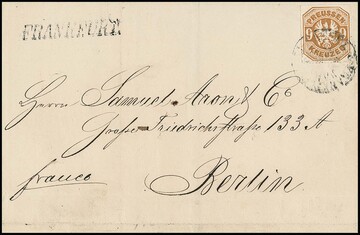 FRANKFURT.
PREUSSEN
9 9
KREUZER
Herrn Samuel Aron & Co
Große Friedrichsstraße 133 A
franco
Berlin